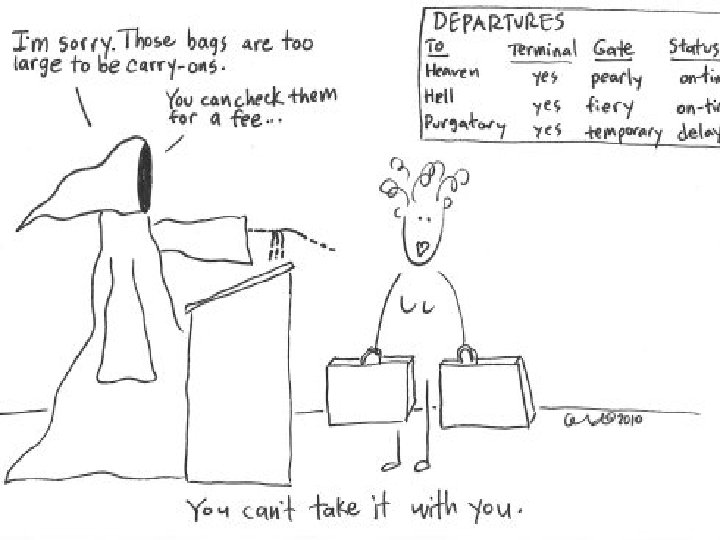 I'm sorry. Those bags are too
large to be carry-ons.
You can check them
for a fee...
DEPARTURES
To Terminal Gate Status
Heaven yes pearly on-tim
Hell yes fiery on-ti
Purgatory yes temporary delay
©2010
You can't take it with you.